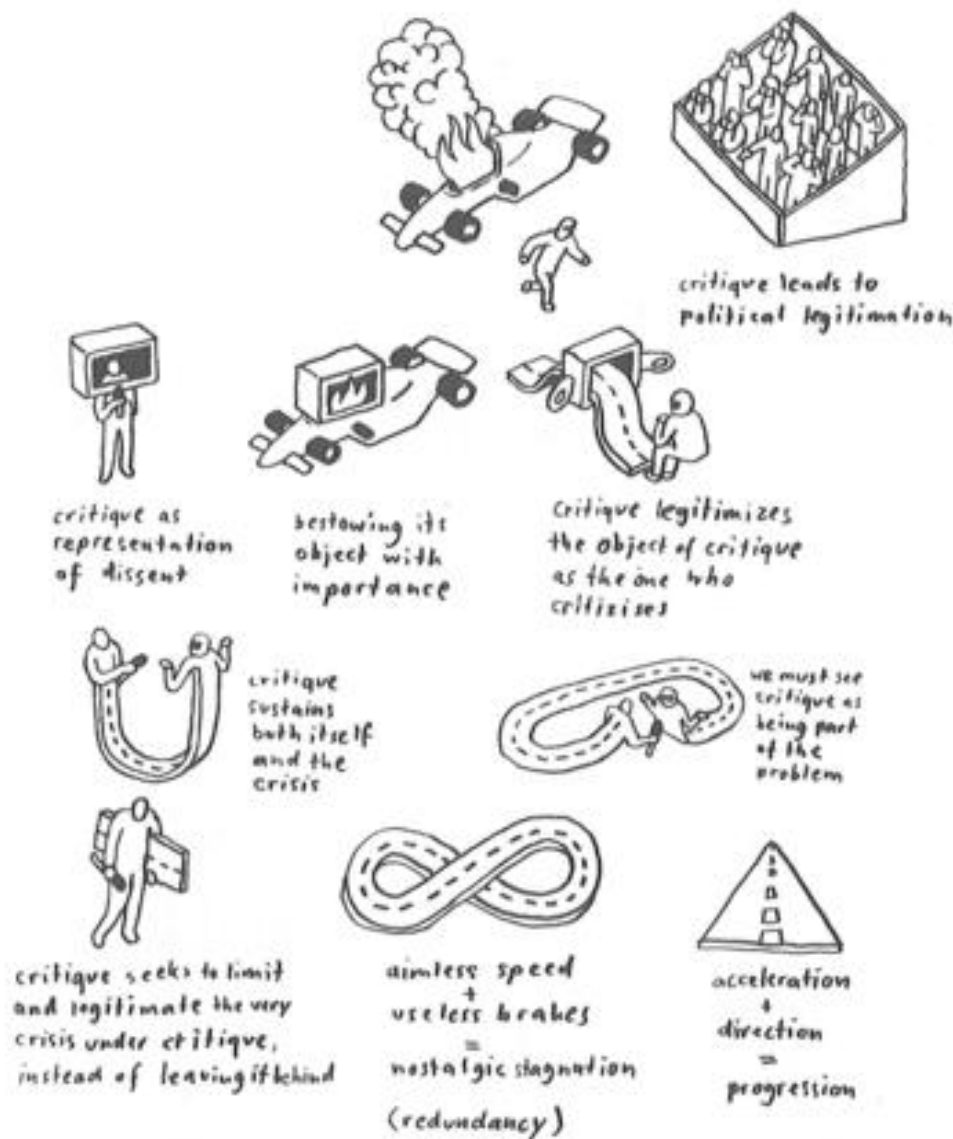 critique leads to
political legitimation
critique as
representation
of dissent
bestowing its
object with
importance
critique legitimizes
the object of critique
as the one who
critizises
critique
sustains
both itself
and the
crisis
we must see
critique as
being part
of the
problem
critique seeks to limit
and legitimate the very
crisis under critique,
instead of leaving it behind
aimless speed
+
useless brakes
=
nostalgic stagnation
(redundancy)
acceleration
+
direction
=
progression